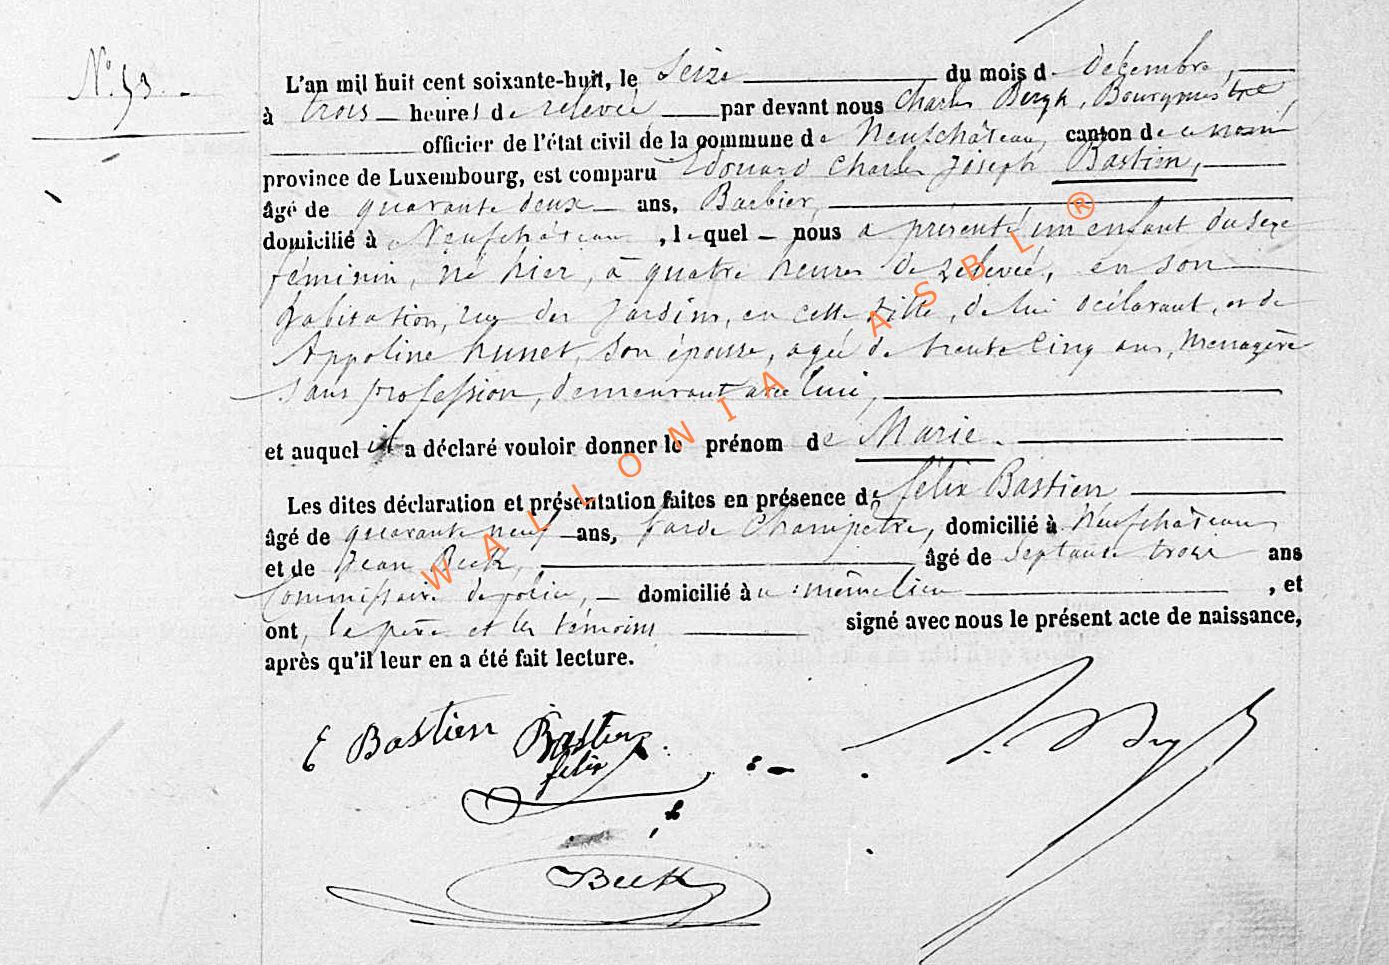 N° 53.
L'an mil huit cent soixante-huit, le Seize du mois de Décembre,
à trois heures de relevée, par devant nous Charles Bergh, Bourgmestre,
officier de l'état civil de la commune de Neufchâteau, canton de ce nom
province de Luxembourg, est comparu Edouard Charles Joseph Bastien,
âgé de quarante deux ans, Barbier,
domicilié à Neufchâteau, lequel nous a présenté un enfant du sexe
féminin, né hier, à quatre heures de relevée, en son
habitation, rue des Jardins, en cette ville, de lui déclarant, et de
Appoline hunet, son épouse, agée de trente cinq ans, Menagère
sans profession, demeurant avec lui,
et auquel il a déclaré vouloir donner le prénom de Marie.
Les dites déclaration et présentation faites en présence de félix Bastien
âgé de quarante neuf ans, Garde Champetre, domicilié à Neufchâteau
et de Jean Beck, âgé de septante trois ans
Commissaire de police, domicilié au même lieu, et
ont, le père et les témoins signé avec nous le présent acte de naissance,
après qu'il leur en a été fait lecture.
E Bastien Bastien
félix
Beck
WALLONIA ASBL ®